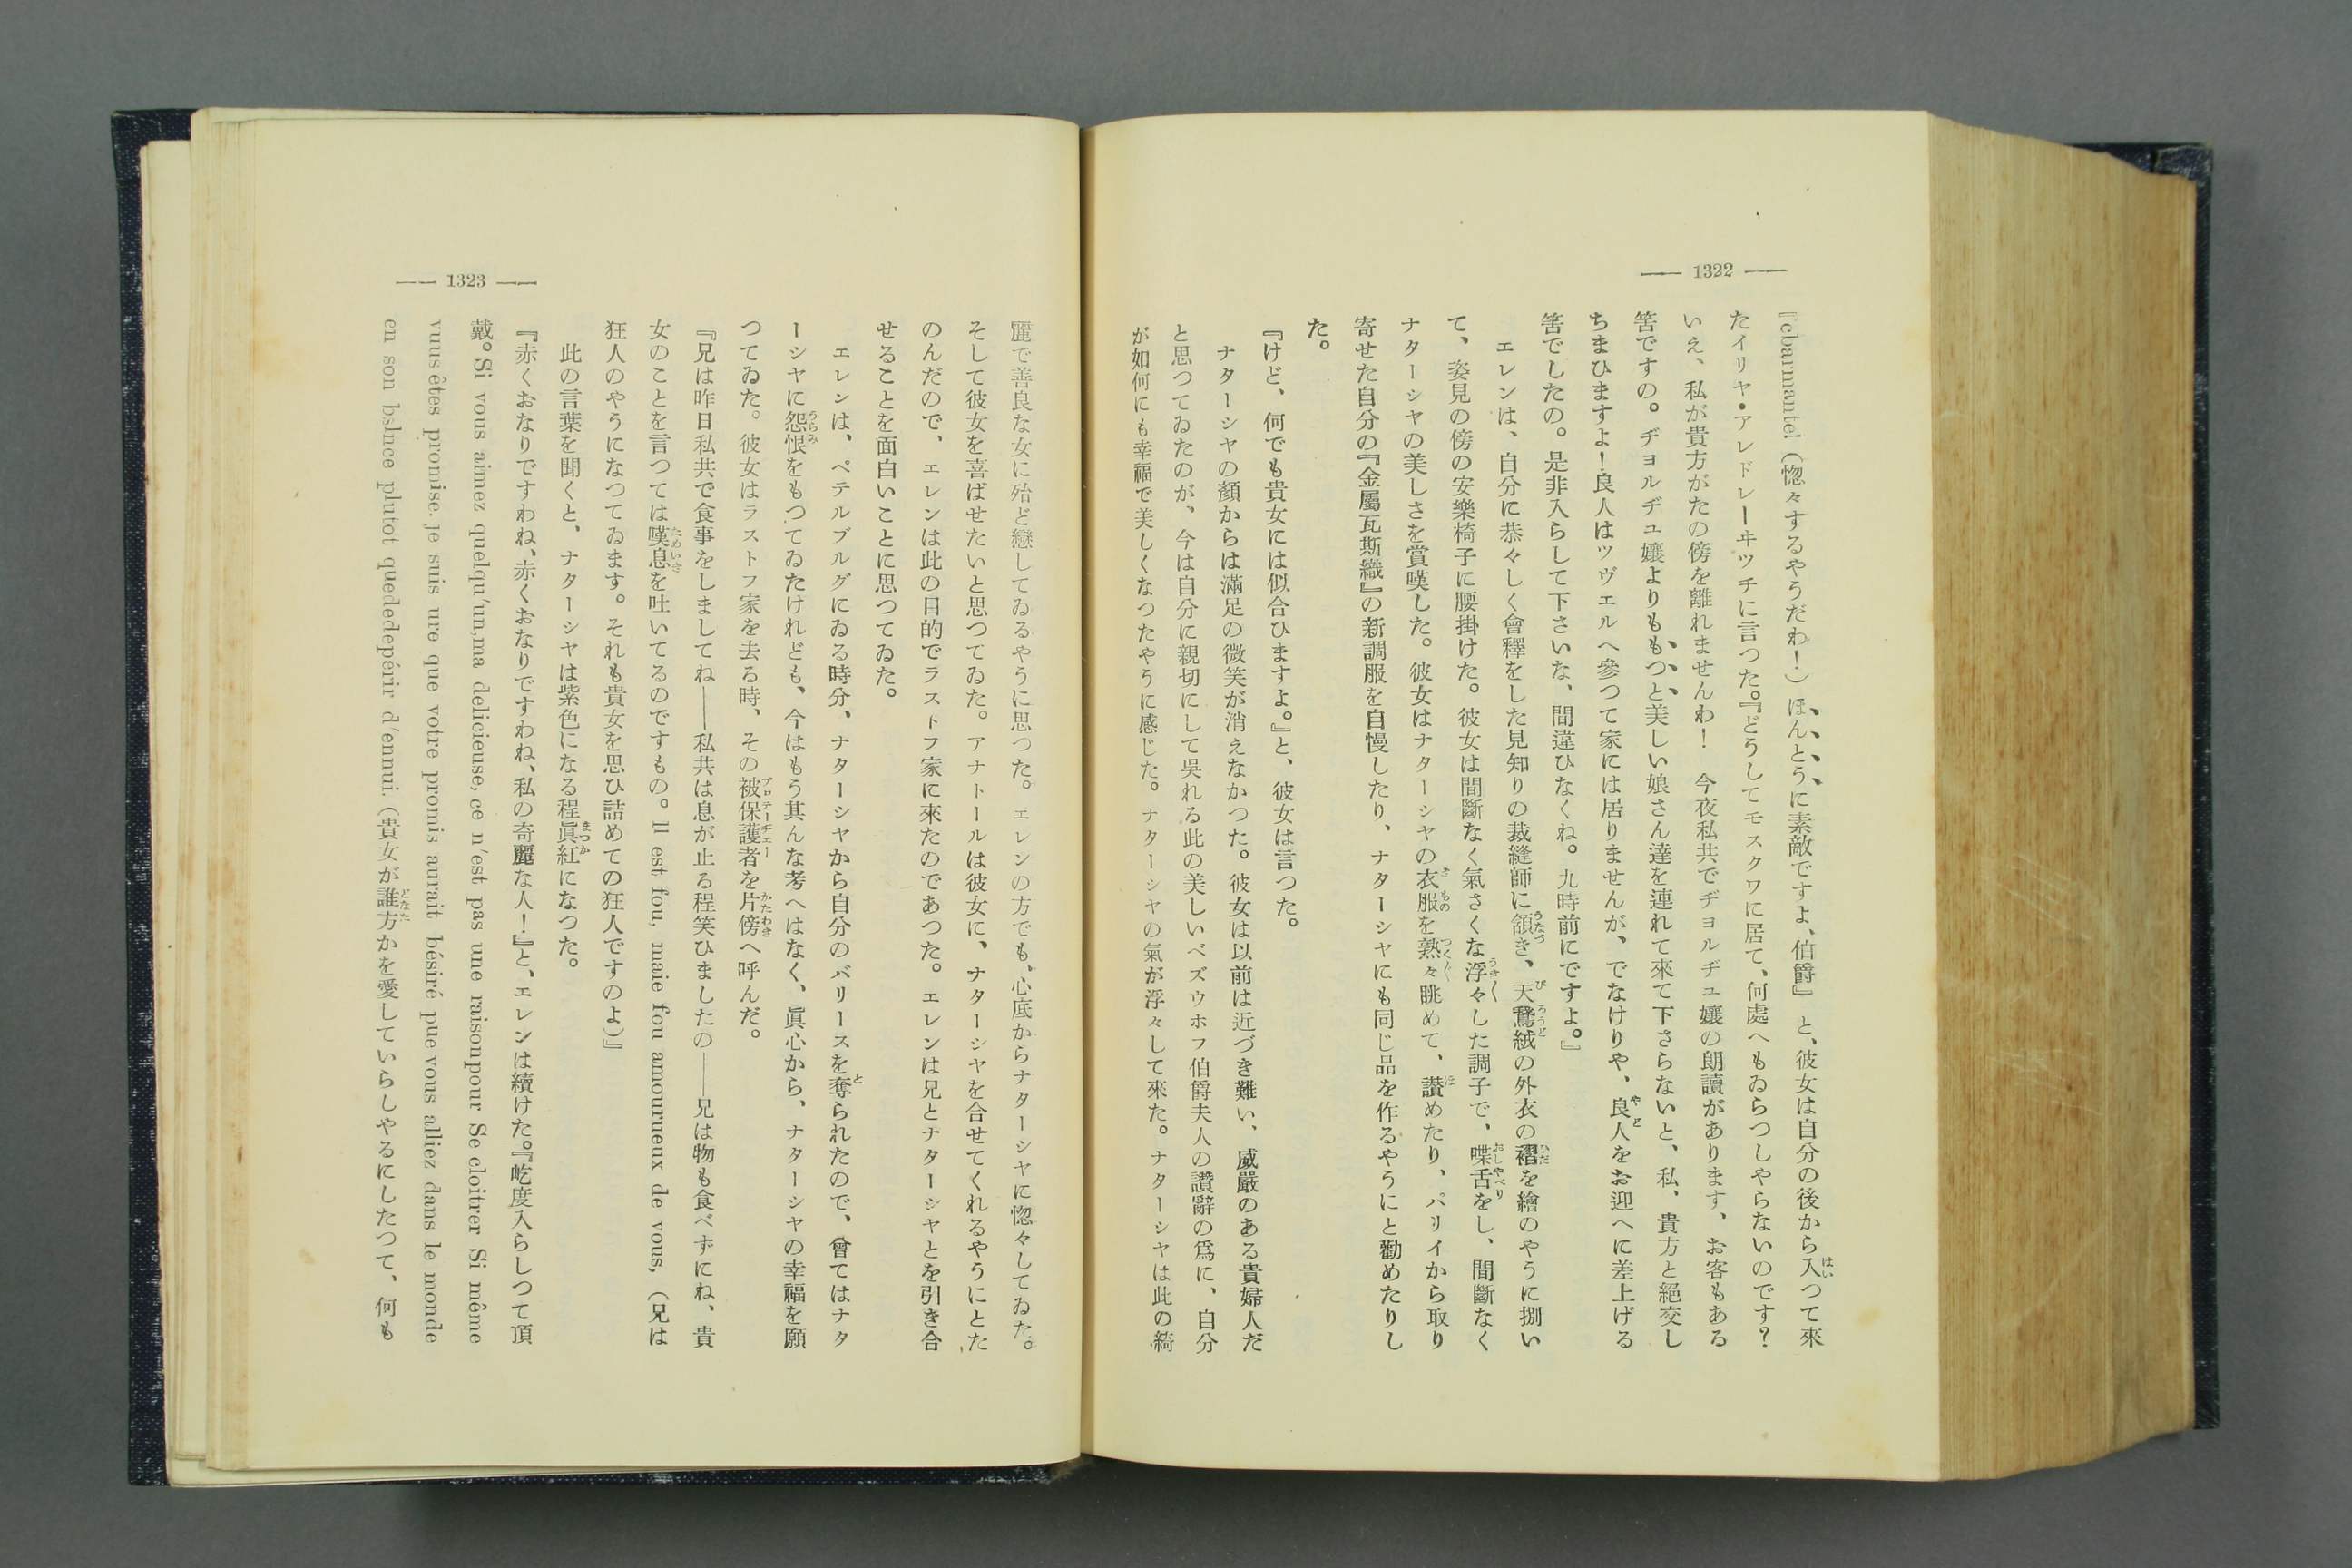 — 1322 —
『cbarmante!（惚々するやうだわ！）ほんとうに素敵ですよ、伯爵』と、彼女は自分の後から入つて來
たイリヤ・アレドレーヰツチに言つた。『どうしてモスクワに居て、何處へもゐらつしやらないのです？
いえ、私が貴方がたの傍を離れませんわ！　今夜私共でヂョルヂュ孃の朗讀があります、お客もある
筈ですの。ヂョルヂュ孃よりももつと美しい娘さん達を連れて來て下さらないと、私、貴方と絕交し
ちまひますよ！良人はツヴェルへ參つて家には居りませんが、でなけりや、良人をお迎へに差上げる
筈でしたの。是非入らして下さいな、間違ひなくね。九時前にですよ。』
エレンは、自分に恭々しく會釋をした見知りの裁縫師に頷き、天鵞絨の外衣の褶を繪のやうに捌い
て、姿見の傍の安樂椅子に腰掛けた。彼女は間斷なく氣さくな浮々した調子で、喋舌をし、間斷なく
ナターシヤの美しさを賞嘆した。彼女はナターシヤの衣服を熟々眺めて、讃めたり、パリイから取り
寄せた自分の『金屬瓦斯織』の新調服を自慢したり、ナターシヤにも同じ品を作るやうにと勸めたりし
た。
『けど、何でも貴女には似合ひますよ。』と、彼女は言つた。
ナターシヤの顏からは滿足の微笑が消えなかつた。彼女は以前は近づき難い、威嚴のある貴婦人だ
と思つてゐたのが、今は自分に親切にして吳れる此の美しいベズウホフ伯爵夫人の讚辭の爲に、自分
が如何にも幸福で美しくなつたやうに感じた。ナターシヤの氣が浮々して來た。ナターシヤは此の綺
— 1323 —
麗で善良な女に殆ど戀してゐるやうに思つた。エレンの方でも、心底からナターシヤに惚々してゐた。
そして彼女を喜ばせたいと思つてゐた。アナトールは彼女に、ナターシヤを合せてくれるやうにとた
のんだので、エレンは此の目的でラストフ家に來たのであつた。エレンは兄とナターシヤとを引き合
せることを面白いことに思つてゐた。
エレンは、ペテルブルグにゐる時分、ナターシヤから自分のバリースを奪られたので、曾てはナタ
ーシヤに怨恨をもつてゐたけれども、今はもう其んな考へはなく、眞心から、ナターシヤの幸福を願
つてゐた。彼女はラストフ家を去る時、その被保護者を片傍へ呼んだ。
『兄は昨日私共で食事をしましてね――私共は息が止る程笑ひましたの――兄は物も食べずにね、貴
女のことを言つては嘆息を吐いてるのですもの。Il est fou, maie fou amourueux de vous,（兄は
狂人のやうになつてゐます。それも貴女を思ひ詰めての狂人ですのよ）』
此の言葉を聞くと、ナターシヤは紫色になる程眞紅になつた。
『赤くおなりですわね、赤くおなりですわね、私の奇麗な人！』と、エレンは續けた。『屹度入らしつて頂
戴。Si vous aimez quelqu'un,ma delicieuse, ce n'est pas une raisonpour Se cloitrer Si même
vuus êtes promise. je suis ure que votre promis aurait bésiré pue vous alliez dans le monde
en son bslnce plutot quededepérir d'ennui.（貴女が誰方かを愛していらしやるにしたつて、何も